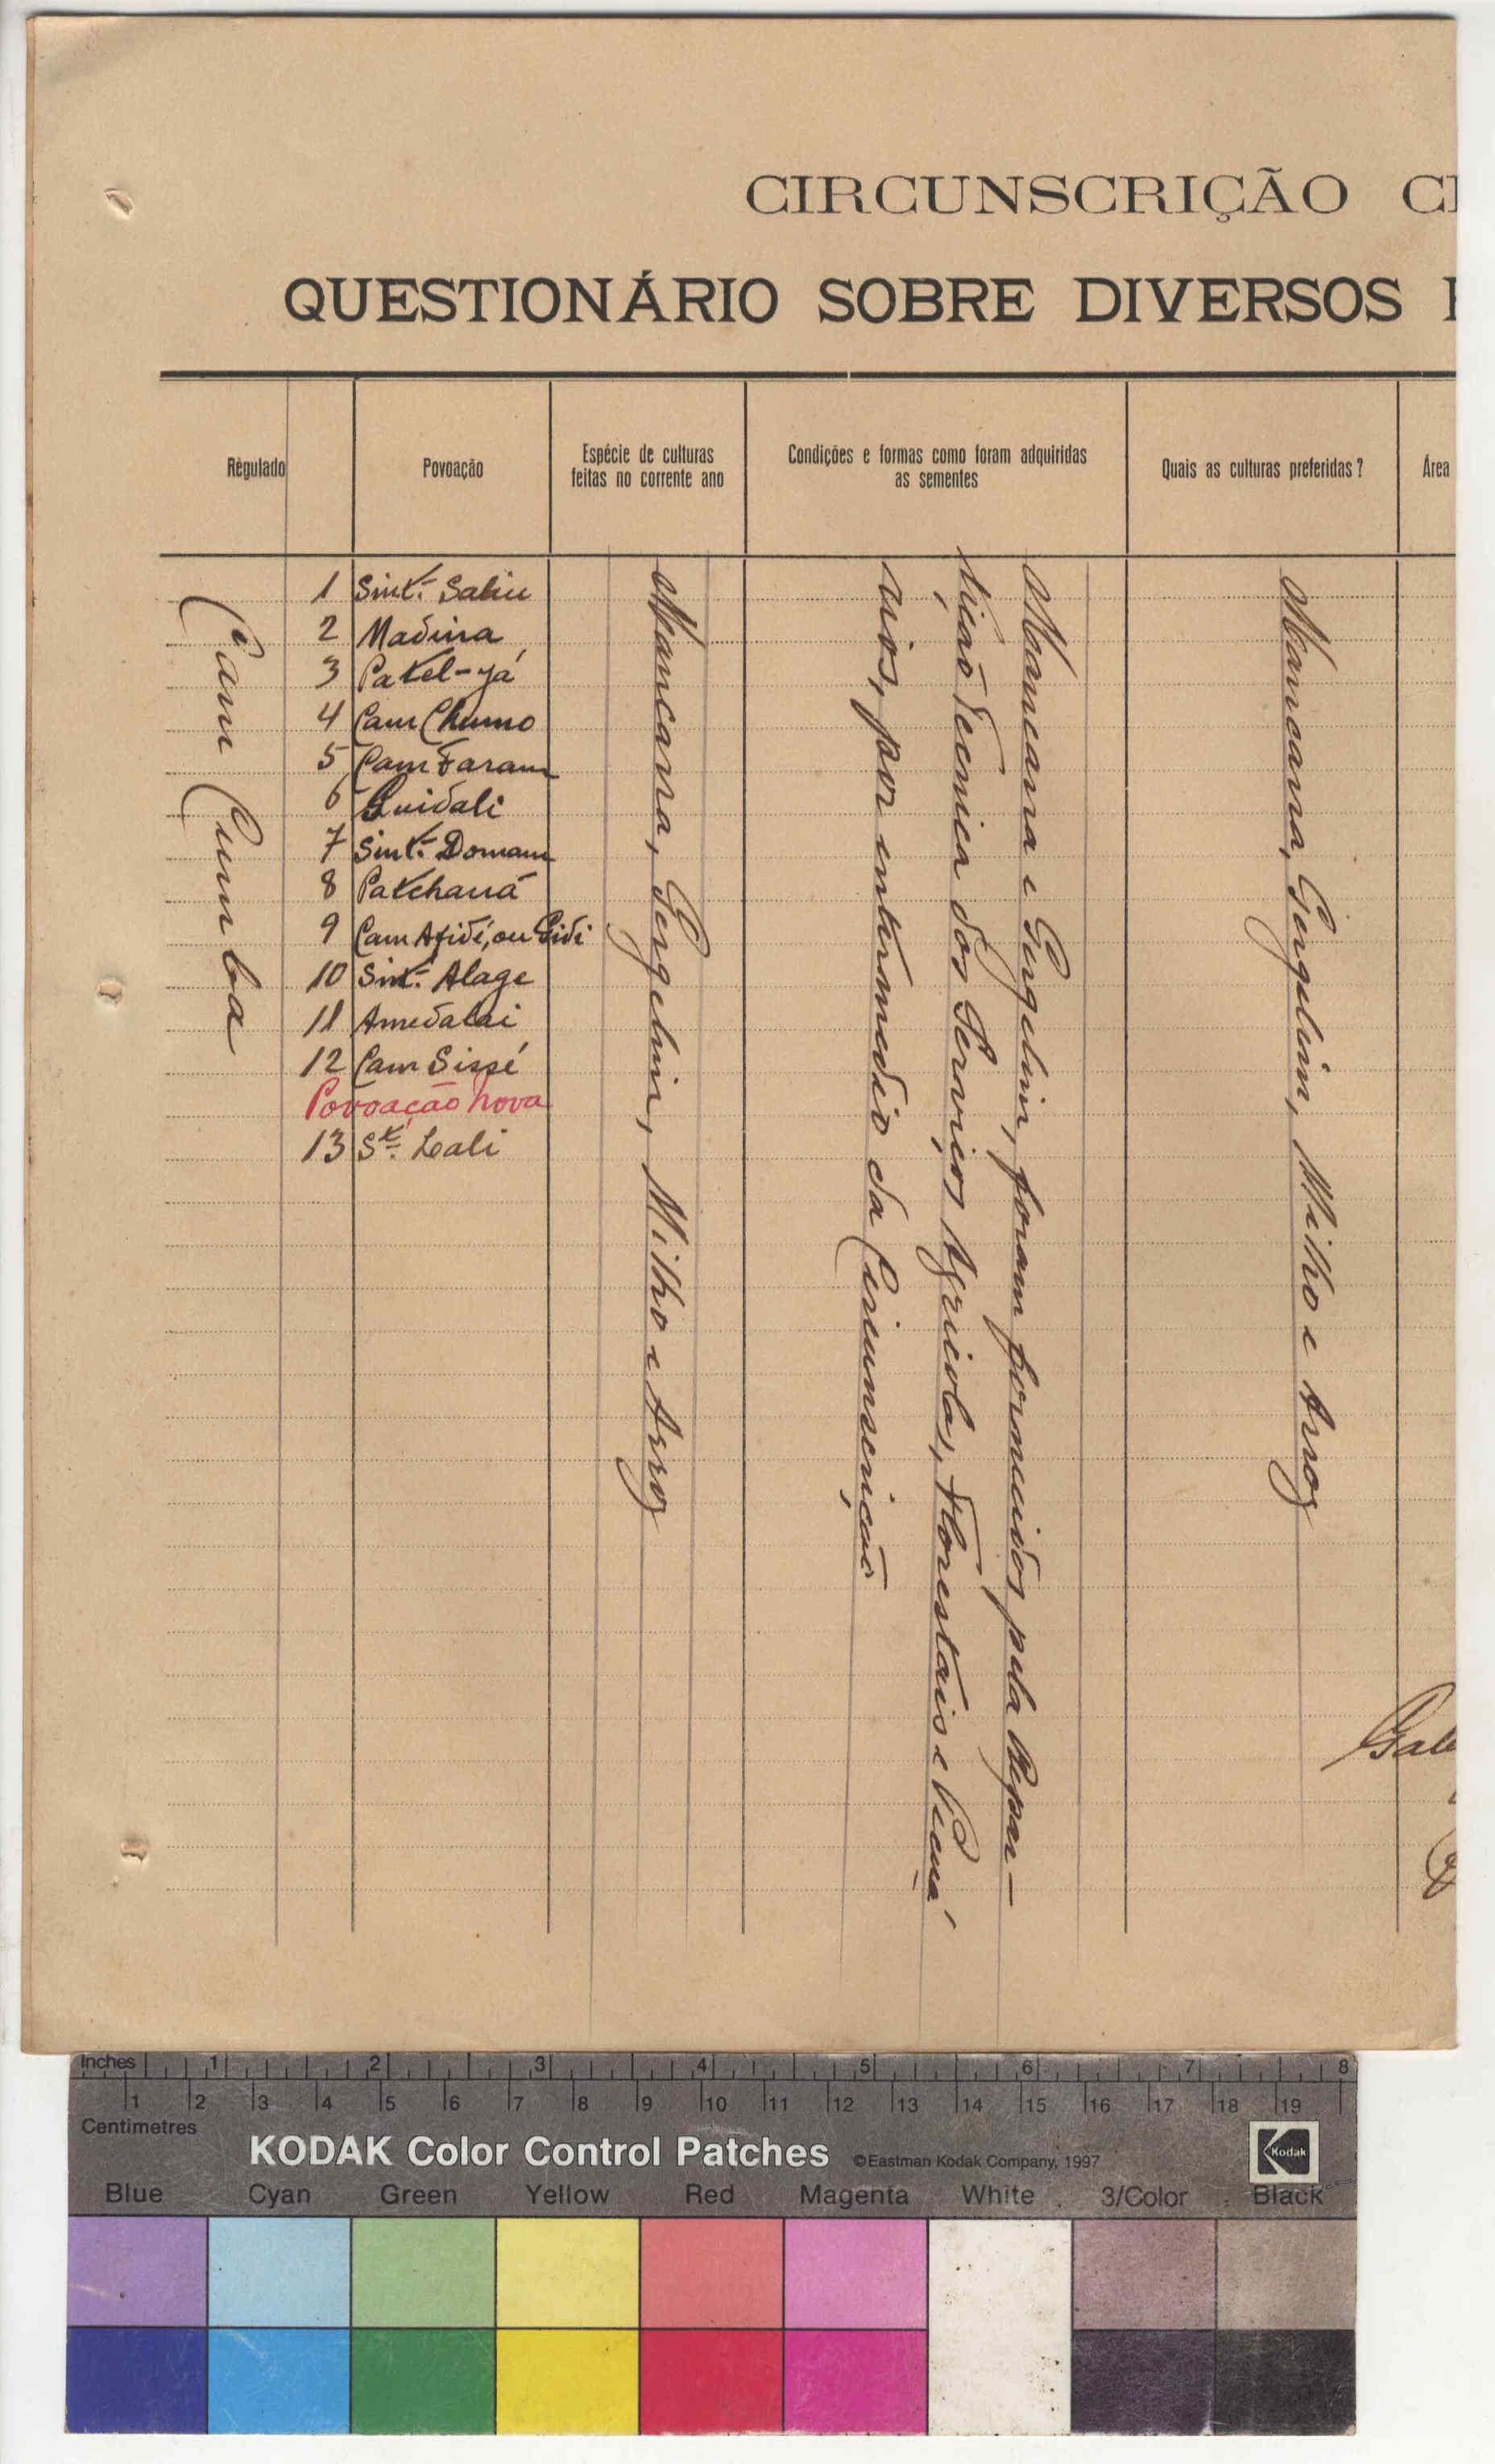 CIRCUNSCRIÇÃO CI
QUESTIONÁRIO SOBRE DIVERSOS
Règulado
Povoação
Espécie de culturas
feitas no corrente ano
Condições e formas como foram adquiridas
as sementes
Quais as culturas preferidas?
Área
Cam Cumba
1 Sint.: Saliu
2 Madina
3 Patel-yá
4 Cam Chumo
5 Cam Faram
6 Guidali
7 Sint.: Domam
8 Patchauá
9 Cam Afidi, ou Gidi
10 Sint.: Alage
11 Amedalai
12 Cam Sissé
Povoação Nova
13 St.: Leali
Mancarra, Gergelim, Milho e Arroz
Mancarra e Gergelim, foram fornecidos pela Repar-
tição Tecnica dos Serviços Agricolas, Florestais e Pecuá
rios, por intermedio da Circunscrição
Mancarra, Gergelim, Milho e Arroz
Gab
Inches 1 2 3 4 5 6 7 8
1 2 3 4 5 6 7 8 9 10 11 12 13 14 15 16 17 18 19
Centimetres
KODAK Color Control Patches ©Eastman Kodak Company, 1997 Kodak
Blue Cyan Green Yellow Red Magenta White 3/Color Black